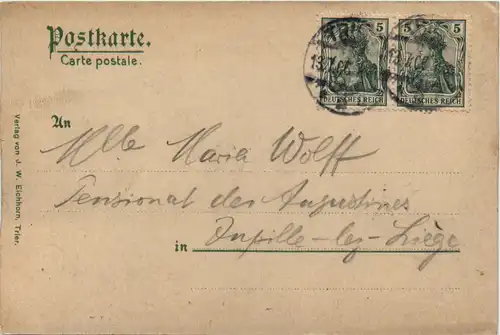 Postkarte.
Carte postale.
5 5
DEUTSCHES REICH DEUTSCHES REICH
An
Mlle Maria Wolff
Pensionat des Augustines
in Jupille-lez-Liège
Verlag von J. W. Eichhorn, Trier.